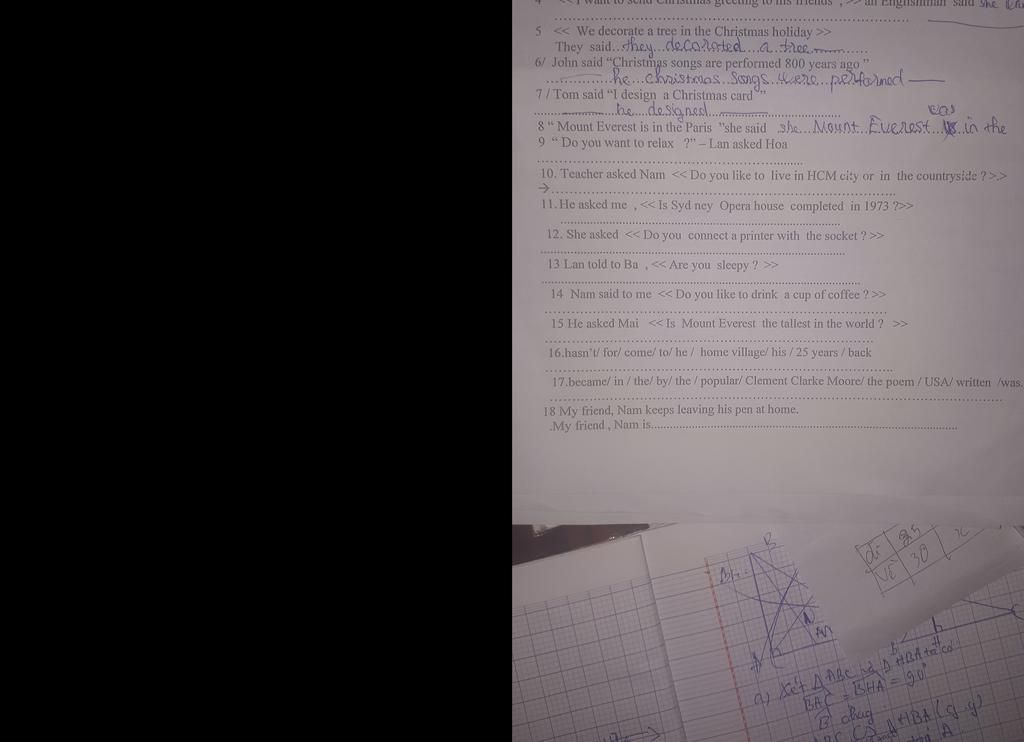 4 << I want to send Christmas greeting to his friends , >> an Englishman said she
5 << We decorate a tree in the Christmas holiday >>
They said...they decorated a tree............
6/ John said “Christmas songs are performed 800 years ago ”
he christmas songs were performed
7 / Tom said “I design a Christmas card ”
he designed
was
8 “ Mount Everest is in the Paris ”she said she Mount Everest in the
9 “ Do you want to relax ?” – Lan asked Hoa
10. Teacher asked Nam << Do you like to live in HCM city or in the countryside ? >.>
→
11. He asked me , << Is Syd ney Opera house completed in 1973 ?>>
12. She asked << Do you connect a printer with the socket ? >>
13 Lan told to Ba , << Are you sleepy ? >>
14 Nam said to me << Do you like to drink a cup of coffee ? >>
15 He asked Mai << Is Mount Everest the tallest in the world ? >>
16.hasn’t/ for/ come/ to/ he / home village/ his / 25 years / back
17.became/ in / the/ by/ the / popular/ Clement Clarke Moore/ the poem / USA/ written /was.
18 My friend, Nam keeps leaving his pen at home.
.My friend , Nam is............................................................
B
30
A
M
h
a) Xét Δ ABC và Δ HBA ta có
BAC = BHA = 90°
B chung
HBA (g.g)